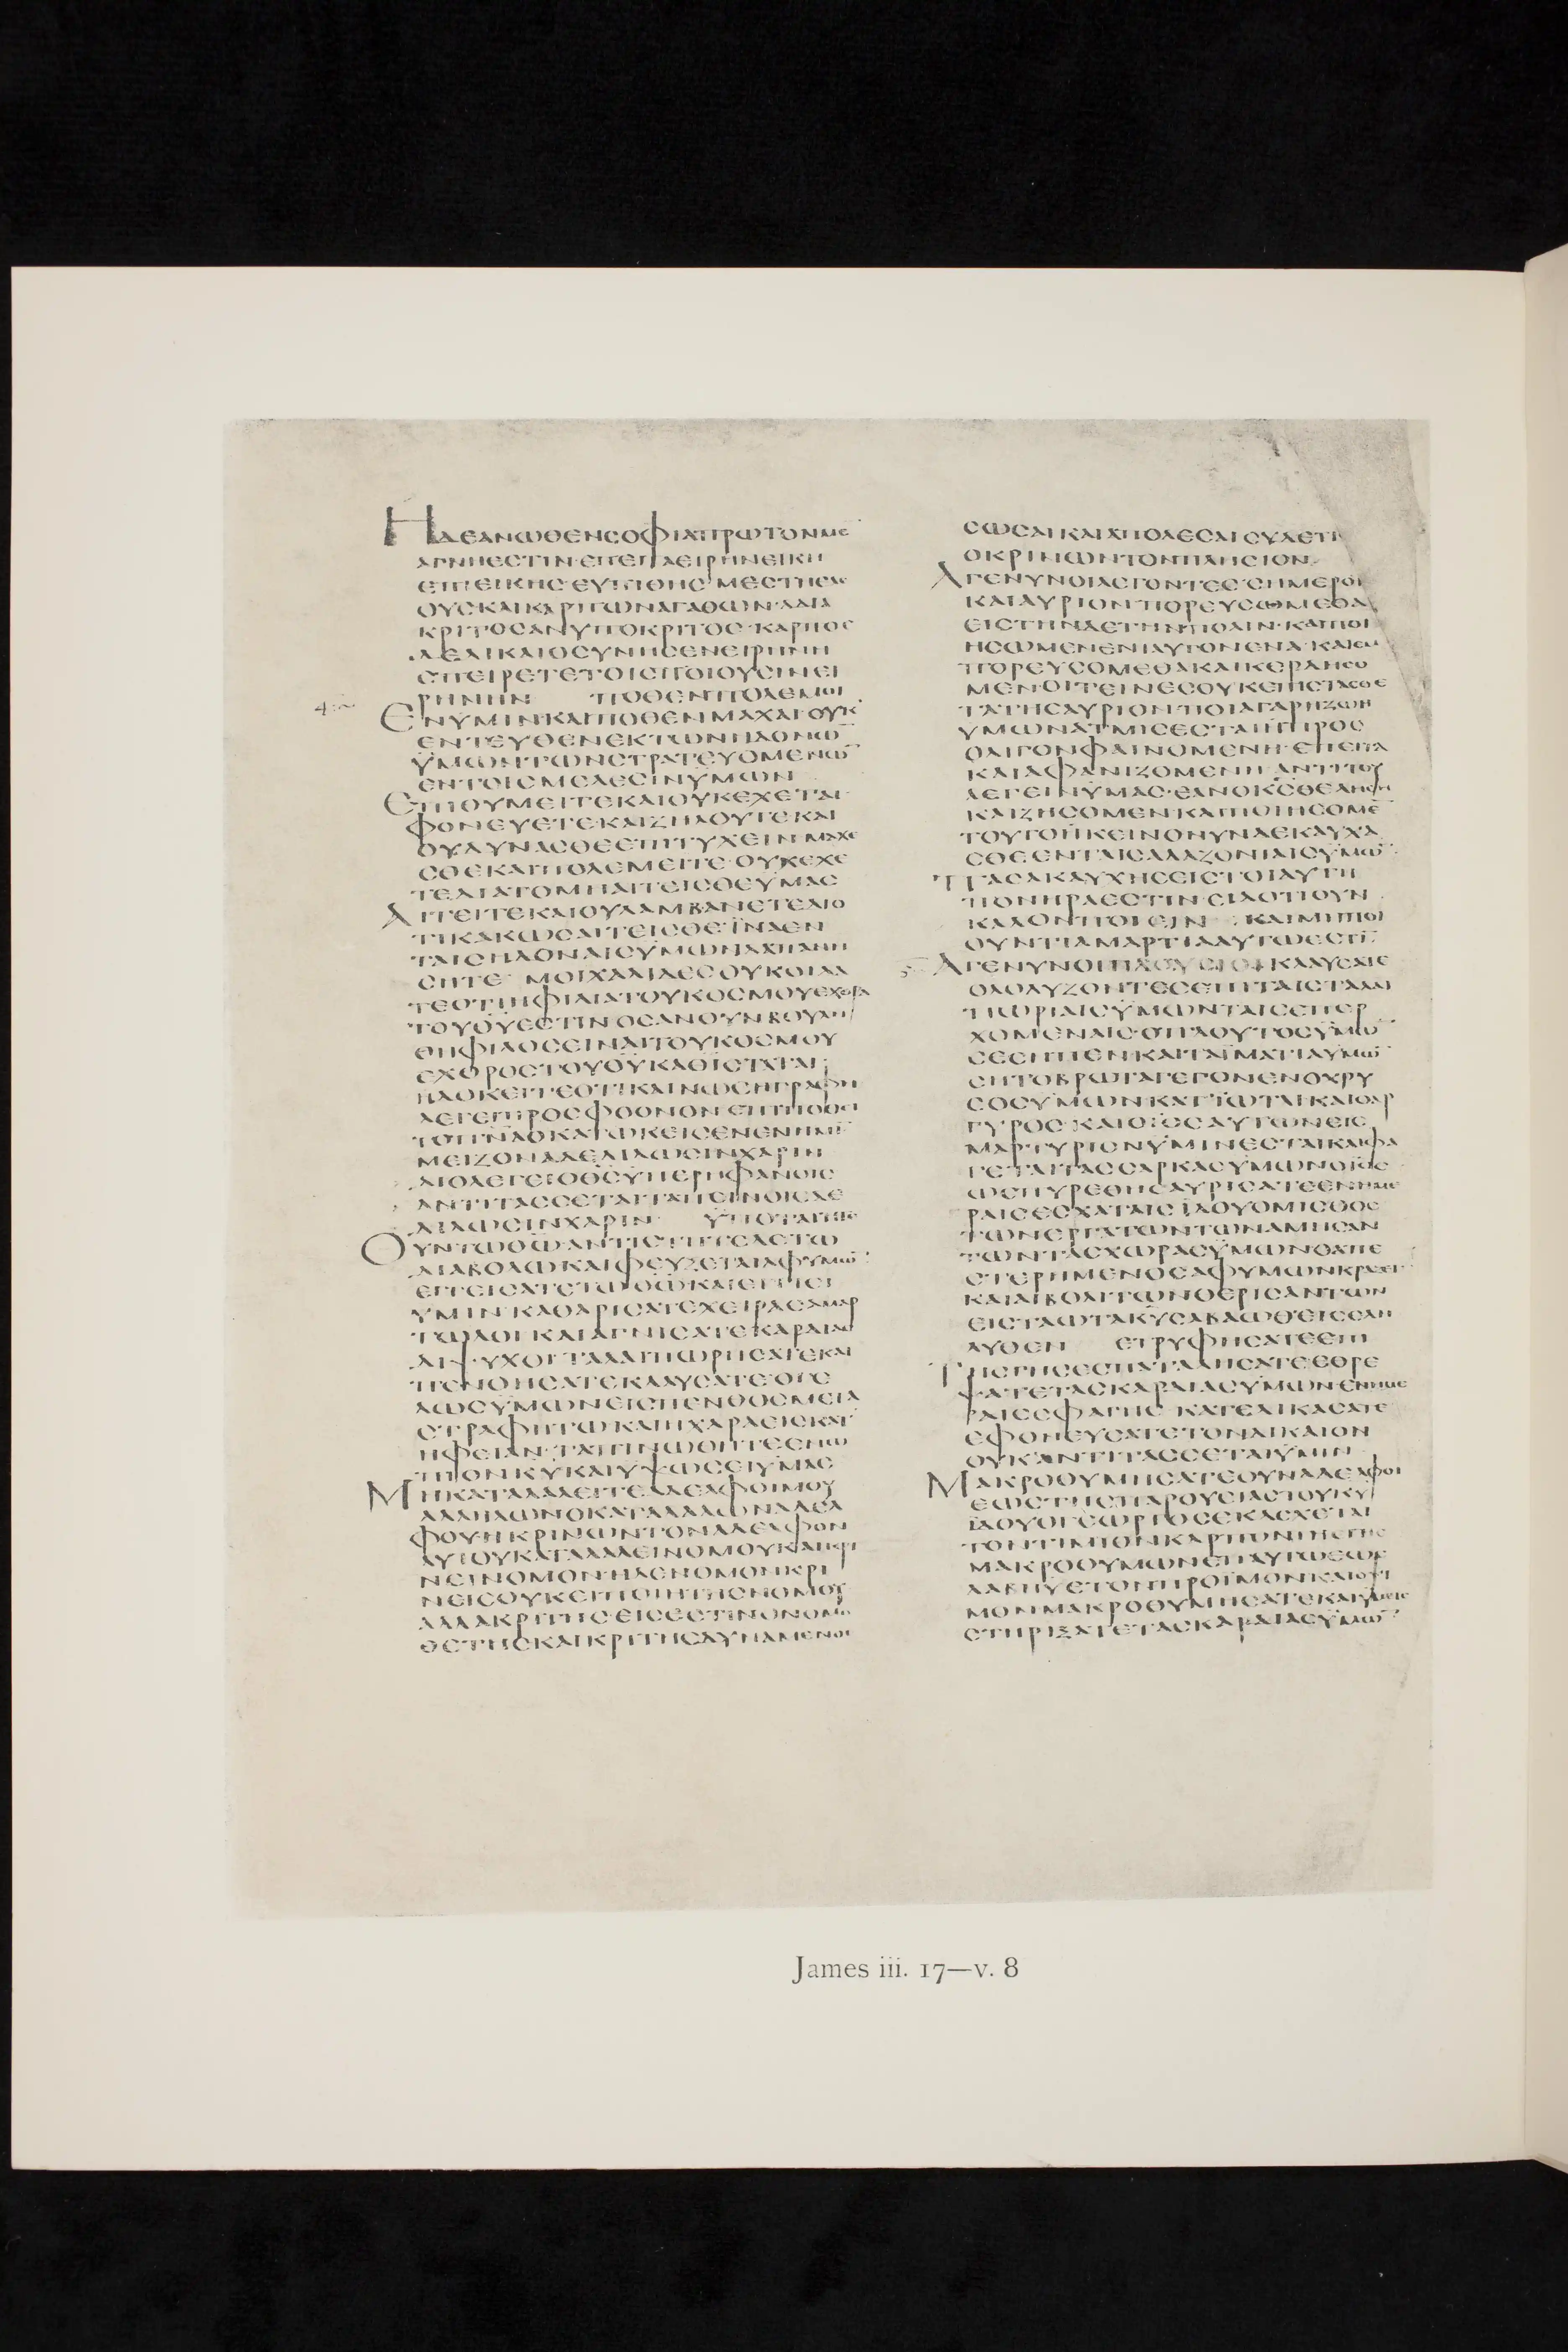 ΗΔΕΑΝΩΘΕΝΣΟΦΙΑΠΡΩΤΟΝΜΕ̅
ΑΓΝΗΕΣΤΙΝ·ΕΠΕΙΤΑΕΙΡΗΝΕΙΚΗ
ΕΠΙΕΙΚΗΣ·ΕΥΠΙΘΗΣ·ΜΕΣΤΗΕΛΕ
ΟΥΣΚΑΙΚΑΡΠΩΝΑΓΑΘΩΝ·ΑΔΙΑ
ΚΡΙΤΟΣΑΝΥΠΟΚΡΙΤΟΣ·ΚΑΡΠΟΣ
ΔΕΔΙΚΑΙΟΣΥΝΗΣΕΝΕΙΡΗΝΗ
ΣΠΕΙΡΕΤΕΤΟΙΣΠΟΙΟΥΣΙΝΕΙ
ΡΗΝΗΝ ΠΟΘΕΝΠΟΛΕΜΟΙ
ΕΝΥΜΙΝΚΑΙΠΟΘΕΝΜΑΧΑΙΟΥΚ
ΕΝΤΕΥΘΕΝΕΚΤΩΝΗΔΟΝΩ̅
ΥΜΩΝΤΩΝΣΤΡΑΤΕΥΟΜΕΝΩ̅
ΕΝΤΟΙΣΜΕΛΕΣΙΝΥΜΩΝ
ΕΠΙΘΥΜΕΙΤΕΚΑΙΟΥΚΕΧΕΤΑΙ
ΦΟΝΕΥΕΤΕΚΑΙΖΗΛΟΥΤΕΚΑΙ
ΟΥΔΥΝΑΣΘΕΕΠΙΤΥΧΕΙΝΜΑΧΕ
ΣΘΕΚΑΙΠΟΛΕΜΕΙΤΕ·ΟΥΚΕΧΕ
ΤΕΔΙΑΤΟΜΗΑΙΤΕΙΣΘΕΥΜΑΣ
ΑΙΤΕΙΤΕΚΑΙΟΥΛΑΜΒΑΝΕΤΕΔΙΟ
ΤΙΚΑΚΩΣΑΙΤΕΙΣΘΕ·ΪΝΑΕΝ
ΤΑΙΣΗΔΟΝΑΙΣΥΜΩΝΔΑΠΑΝΗ
ΣΗΤΕ ΜΟΙΧΑΛΙΔΕΣΟΥΚΟΙΔΑ
ΤΕΟΤΙΗΦΙΛΙΑΤΟΥΚΟΣΜΟΥΕΧΘΡΑ
ΤΟΥΘΥ̅ΕΣΤΙΝΟΣΑΝΟΥΝΒΟΥΛΗ
ΘΗΦΙΛΟΣΕΙΝΑΙΤΟΥΚΟΣΜΟΥ
ΕΧΘΡΟΣΤΟΥΘΥ̅ΚΑΘΙΣΤΑΤΑΙ
ΗΔΟΚΕΙΤΕΟΤΙΚΑΙΝΩΣΗΓΡΑΦΗ
ΛΕΓΕΙΠΡΟΣΦΘΟΝΟΝΕΠΙΠΟΘΕΙ
ΤΟΠΝ̅ΑΟΚΑΤΩΚΕΙΣΕΝΕΝΗΜΙ̅
ΜΕΙΖΟΝΑΔΕΔΙΔΩΣΙΝΧΑΡΙΝ
ΔΙΟΛΕΓΕΙΟΘΣ̅ΥΠΕΡΗΦΑΝΟΙΣ
ΑΝΤΙΤΑΣΣΕΤΑΙΤΑΠΙΝΟΙΣΔΕ
ΔΙΔΩΣΙΝΧΑΡΙΝ ΥΠΟΤΑΓΗΤΕ
ΟΥΝΤΩΘΩ̅ΑΝΤΙΣΤΗΤΕΔΕΤΩ
ΔΙΑΒΟΛΩΚΑΙΦΕΥΞΕΤΑΙΑΦΥΜΩ̅
ΕΓΓΕΙΣΑΤΕΤΩΘΩ̅ΚΑΙΕΓΓΙΕΙ
ΥΜΙΝ·ΚΑΘΑΡΙΣΑΤΕΧΕΙΡΑΣΑΜΑΡ
ΤΩΛΟΙ·ΚΑΙΑΓΝΙΣΑΤΕΚΑΡΔΙΑΣ
ΔΙΨΥΧΟΙ·ΤΑΛΑΙΠΩΡΗΣΑΤΕΚΑΙ
ΠΕΝΘΗΣΑΤΕΚΛΑΥΣΑΤΕΟΓΕ
ΛΩΣΥΜΩΝΕΙΣΠΕΝΘΟΣΜΕΤΑ
ΣΤΡΑΦΗΤΩΚΑΙΗΧΑΡΑΕΙΣΚΑΤ
ΗΦΕΙΑΝ·ΤΑΠΙΝΩΘΗΤΕΕΝΩ
ΠΙΟΝΚΥ̅ΚΑΙΥΨΩΣΕΙΥΜΑΣ
ΜΗΚΑΤΑΛΑΛΕΙΤΕΑΔΕΛΦΟΙΜΟΥ
ΑΛΛΗΛΩΝΟΚΑΤΑΛΑΛΩΝΑΔΕΛ
ΦΟΥ·ΗΚΡΙΝΩΝΤΟΝΑΔΕΛΦΟΝ
ΑΥΤΟΥΚΑΤΑΛΑΛΕΙΝΟΜΟΥΚΑΙΚΡΙ
ΝΕΙΝΟΜΟΝ·ΗΔΕΝΟΜΟΝΚΡΙ
ΝΕΙΣΟΥΚΕΙΠΟΙΗΤΗΣΝΟΜΟΥ
ΑΛΛΑΚΡΙΤΗΣ·ΕΙΣΕΣΤΙΝΟΝΟΜΟ
ΘΕΤΗΣΚΑΙΚΡΙΤΗΣΔΥΝΑΜΕΝΟΣ
ΣΩΣΑΙΚΑΙΑΠΟΛΕΣΑΙΣΥΔΕΤΙ
ΟΚΡΙΝΩΝΤΟΝΠΛΗΣΙΟΝ
ΑΓΕΝΥΝΟΙΛΕΓΟΝΤΕΣΣΗΜΕΡΟΝ
ΚΑΙΑΥΡΙΟΝΠΟΡΕΥΣΩΜΕΘΑ
ΕΙΣΤΗΝΔΕΤΗΝΠΟΛΙΝ·ΚΑΙΠΟΙ
ΗΣΩΜΕΝΕΝΙΑΥΤΟΝΕΝΑ·ΚΑΙΕΜ
ΠΟΡΕΥΣΟΜΕΘΑΚΑΙΚΕΡΔΗΣΟ
ΜΕΝ·ΟΙΤΕΙΝΕΣΟΥΚΕΠΙΣΤΑΣΘΕ
ΤΑΤΗΣΑΥΡΙΟΝ·ΠΟΙΑΓΑΡΗΖΩΗ
ΥΜΩΝΑΤΜΙΣΕΣΤΑΙΗΠΡΟΣ
ΟΛΙΓΟΝΦΑΙΝΟΜΕΝΗ·ΕΠΕΙΤΑ
ΚΑΙΑΦΑΝΙΖΟΜΕΝΗ ΑΝΤΙΤΟΥ
ΛΕΓΕΙΝΥΜΑΣ·ΕΑΝΟΚΣ̅ΘΕΛΗΣΗ
ΚΑΙΖΗΣΟΜΕΝΚΑΙΠΟΙΗΣΟΜΕ̅
ΤΟΥΤΟΗΚΕΙΝΟΝΥΝΔΕΚΑΥΧΑ
ΣΘΕΕΝΤΑΙΣΑΛΑΖΟΝΙΑΙΣΥΜΩ̅
ΠΑΣΑΚΑΥΧΗΣΕΙΣΤΟΙΑΥΤΗ
ΠΟΝΗΡΑΕΣΤΙΝ·ΕΙΔΟΤΙΟΥΝ
ΚΑΛΟΝΠΟΙΕΙΝ ΚΑΙΜΗΠΟΙ
ΟΥΝΤΙΑΜΑΡΤΙΑΑΥΤΩΕΣΤΙ̅
ΑΓΕΝΥΝΟΙΠΛΟΥΣΙΟΙΚΛΑΥΣΑΤΕ
ΟΛΟΛΥΖΟΝΤΕΣΕΠΙΤΑΙΣΤΑΛΑΙ
ΠΩΡΙΑΙΣΥΜΩΝΤΑΙΣΕΠΕΡ
ΧΟΜΕΝΑΙΣ·ΟΠΛΟΥΤΟΣΥΜΩ̅
ΣΕΣΗΠΕΝΚΑΙΤΑΪΜΑΤΙΑΥΜΩ̅
ΣΗΤΟΒΡΩΤΑΓΕΓΟΝΕΝΟΧΡΥ
ΣΟΣΥΜΩΝΚΑΤΙΩΤΑΙΚΑΙΟΑΡ
ΓΥΡΟΣ·ΚΑΙΟΙΟΣΑΥΤΩΝΕΙΣ
ΜΑΡΤΥΡΙΟΝΥΜΙΝΕΣΤΑΙΚΑΙΦΑ
ΓΕΤΑΙΤΑΣΣΑΡΚΑΣΥΜΩΝΟΪΟΣ
ΩΣΠΥΡΕΘΗΣΑΥΡΙΣΑΤΕΕΝΗΜΕ
ΡΑΙΣΕΣΧΑΤΑΙΣ ΪΔΟΥΟΜΙΣΘΟΣ
ΤΩΝΕΡΓΑΤΩΝΤΩΝΑΜΗΣΑΝ
ΤΩΝΤΑΣΧΩΡΑΣΥΜΩΝΟΑΠΕ
ΣΤΕΡΗΜΕΝΟΣΑΦΥΜΩΝΚΡΑΖΕΙ
ΚΑΙΑΙΒΟΑΙΤΩΝΘΕΡΙΣΑΝΤΩΝ
ΕΙΣΤΑΩΤΑΚΥ̅ΣΑΒΑΩΘΕΙΣΕΛΗ
ΛΥΘΕΝ ΕΤΡΥΦΗΣΑΤΕΕΠΙ
ΤΗΣΓΗΣΕΣΠΑΤΑΛΗΣΑΤΕΕΘΡΕ
ΨΑΤΕΤΑΣΚΑΡΔΙΑΣΥΜΩΝ·ΕΝΗΜΕ
ΡΑΙΣΣΦΑΓΗΣ·ΚΑΤΕΔΙΚΑΣΑΤΕ
ΕΦΟΝΕΥΣΑΤΕΤΟΝΔΙΚΑΙΟΝ
ΟΥΚΑΝΤΙΤΑΣΣΕΤΑΙΥΜΙΝ
ΜΑΚΡΟΘΥΜΗΣΑΤΕΟΥΝΑΔΕΛΦΟΙ
ΕΩΣΤΗΣΠΑΡΟΥΣΙΑΣΤΟΥΚΥ̅
ΪΔΟΥΟΓΕΩΡΓΟΣΕΚΔΕΧΕΤΑΙ
ΤΟΝΤΙΜΙΟΝΚΑΡΠΟΝΤΗΣΓΗΣ
ΜΑΚΡΟΘΥΜΩΝΕΠΑΥΤΩΕΩΣ
ΛΑΒΗΥΕΤΟΝΠΡΟΪΜΟΝΚΑΙΟΨΙ
ΜΟΝΜΑΚΡΟΘΥΜΗΣΑΤΕΚΑΙΥΜΕΙΣ
ΣΤΗΡΙΞΑΤΕΤΑΣΚΑΡΔΙΑΣΥΜΩ̅
James iii. 17—v. 8